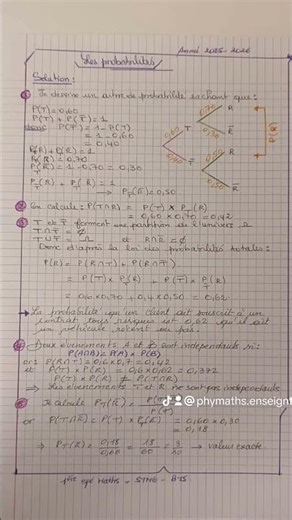 Année 2025 - 2026
Les probabilités
Solution :
① Je dessine un arbre de probabilité sachant que :
P(T) = 0,60
P(T) + P(T̄) = 1
donc P(T̄) = 1 - P(T)
= 1 - 0,60
= 0,40
P_T(R) + P_T(R̄) = 1
P_T(R) = 0,70
P_T(R̄) = 1 - 0,70 = 0,30
P_T̄(R) + P_T̄(R̄) = 1
→ P_T̄(R) = 0,50
0,60 T 0,70 R
0,30 R̄
0,40 T̄ R
R̄
P(R)
② On calcule : P(T∩R) = P(T) × P_T(R)
= 0,60 × 0,70 = 0,42
③ T et T̄ forment une partition de l'univers Ω
T ∩ T̄ = ∅
T ∪ T̄ = Ω et R∩R̄ = ∅
Donc d'après la loi des probabilités totales :
P(R) = P(R∩T) + P(R∩T̄)
= P(T) × P_T(R) + P(T̄) × P_T̄(R)
= 0,6 × 0,70 + 0,4 × 0,50 = 0,62
→ La probabilité qu'un client ait souscrit à un
contrat tous risques est 0,62 qu'il ait
un véhicule récent ou pas.
④ Deux événements A et B sont indépendants si :
P(A∩B) = P(A) × P(B)
or : P(R∩T) = 0,6 × 0,7 = 0,42
et P(T) × P(R) = 0,6 × 0,62 = 0,372
P(T) × P(R) ≠ P(T∩R)
⇒ Les événements T et R ne sont pas indépendants
⑤ Je calcule P_T(R̄) =
P(T)
or P(T∩R̄) = P(T) × P_T(R̄) = 0,60 × 0,30
= 0,18
⇒ P_T(R̄) = 0,18/0,60 = 18/60 = 3/10 → valeur exacte
1ère spé Maths - STMG -
@phymaths.enseignt